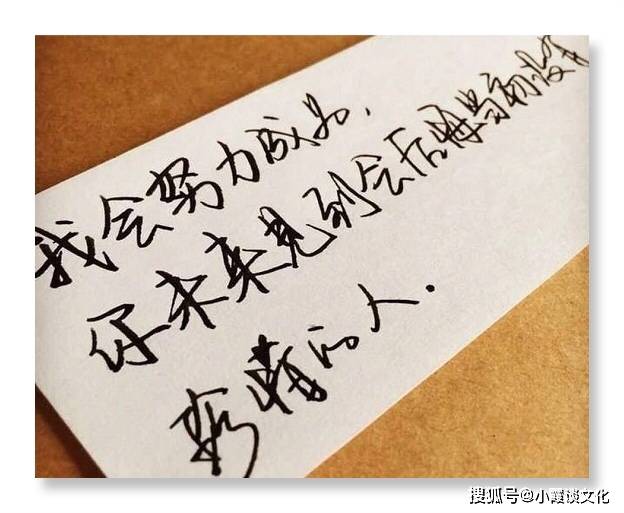 我会努力成为,
你未来见到会后悔当初没有
珍惜的人.
搜狐号@小霞谈文化